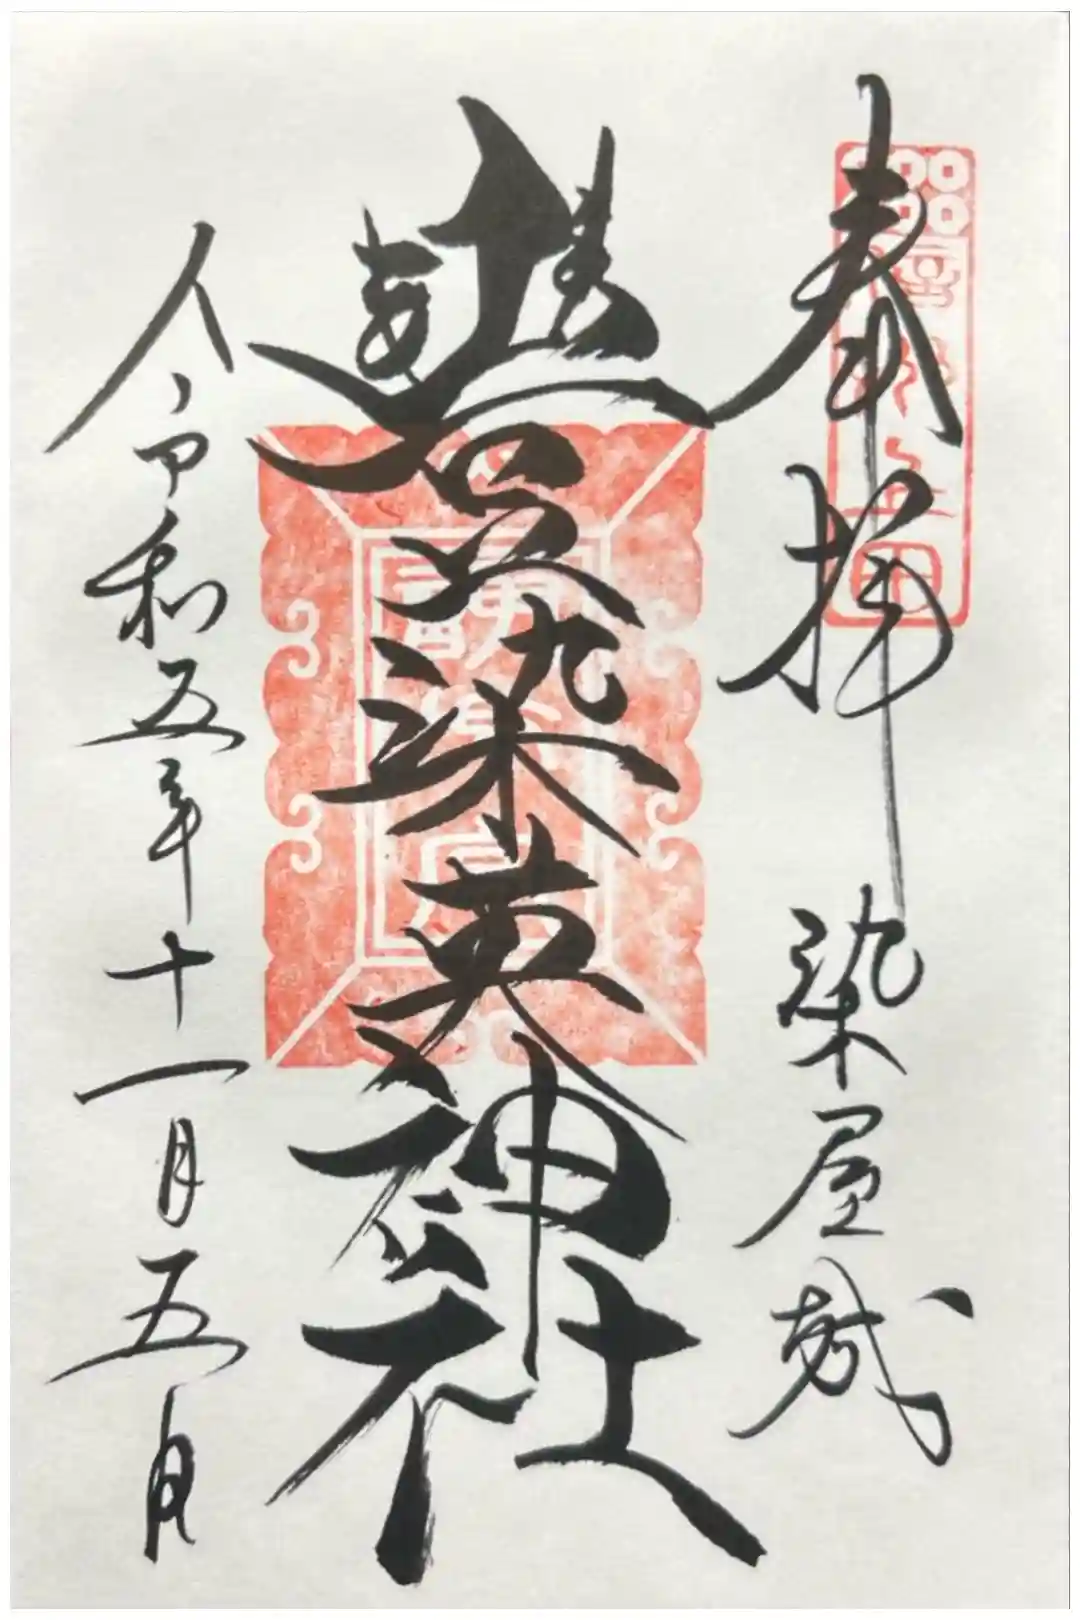 奉拝 染屋城
豐染英神社
令和五年十一月五日